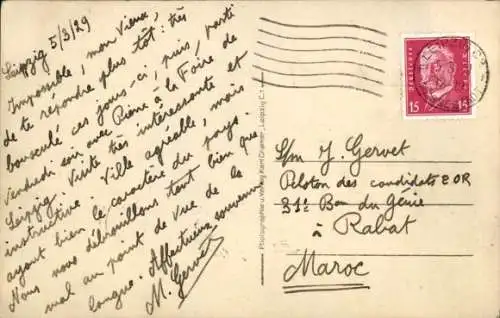 Leipzig 5/3/29
Impossible, mon vieux,
de te répondre plus tôt : très
bousculé ces jours-ci, puis, parti
vendredi soir avec Pierre à la Foire de
Leipzig. Visite très intéressante et
instructive. Ville agréable, mais
ayant bien le caractère du pays.
Nous nous débrouillons tant bien que
mal au point de vue de la
langue. Affectueux souvenirs
M. Gervet
Photographie u. Verlag Leipzig C. 1
DEUTSCHES REICH
15 15
S/m J. Gervet
Peloton des candidats E OR
31e Bon du Génie
à Rabat
Maroc